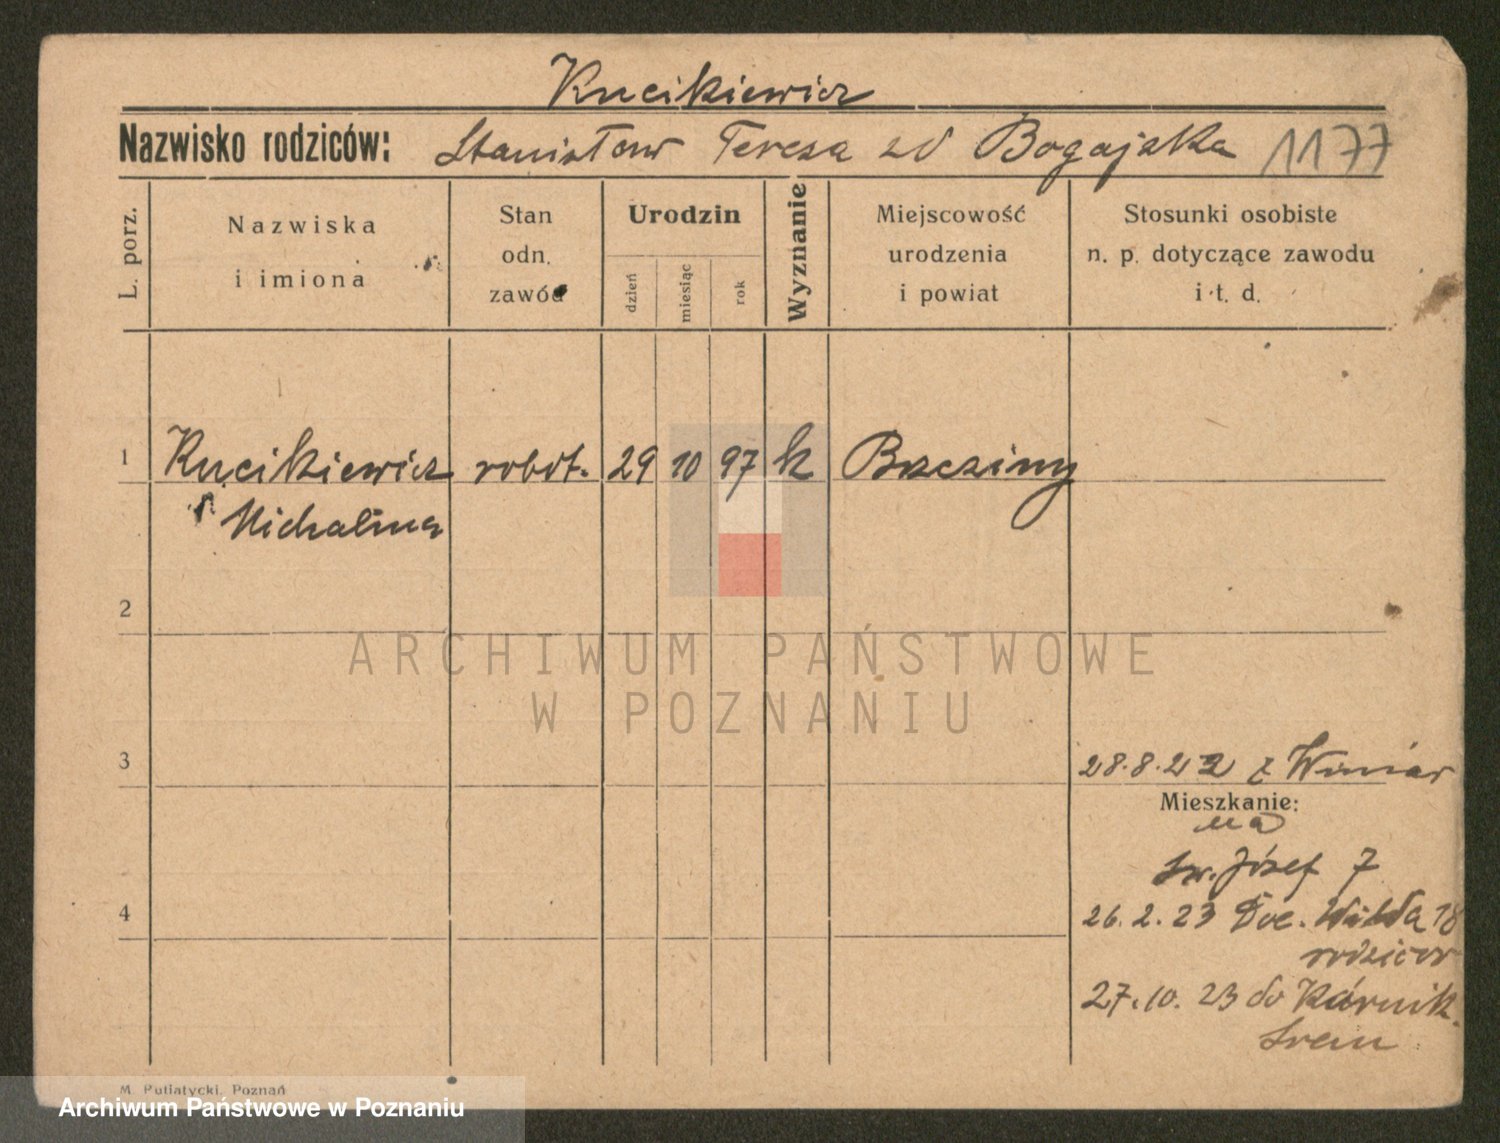 Kucikiewicz
Nazwisko rodziców: Stanisław Teresa zd Bogajska 1177
L. porz.
Nazwiska
i imiona
Stan
odn.
zawód
Urodzin
dzień
miesiąc
rok
Wyznanie
Miejscowość
urodzenia
i powiat
Stosunki osobiste
n. p. dotyczące zawodu
i t. d.
1 Kucikiewicz robot. 29 10 97 k Brzeziny
Michalina
2
ARCHIWUM PAŃSTWOWE
W POZNANIU
3
28.8.22 z Winiar
Mieszkanie:
św. Józef 7
4
26.2.23 Wilda 18
27.10.23 do Kórnik
Śrem
M. Putiatycki, Poznań
Archiwum Państwowe w Poznaniu